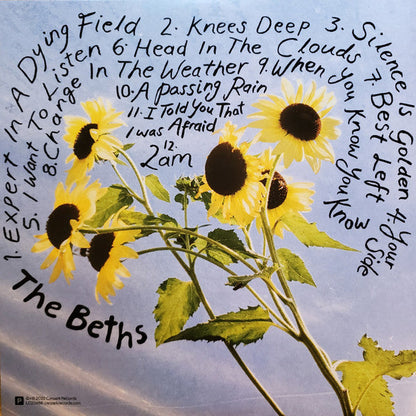 1. Expert In A Dying Field 2. Knees Deep 3. Silence Is Golden 4. Your Side
5. I Want To Listen 6. Head In The Clouds 7. Best Left
8. Change In The Weather 9. When You Know You Know
10. A Passing Rain
11. I Told You That
I was Afraid
12.
2am
The Beths
2022 Carpark Records